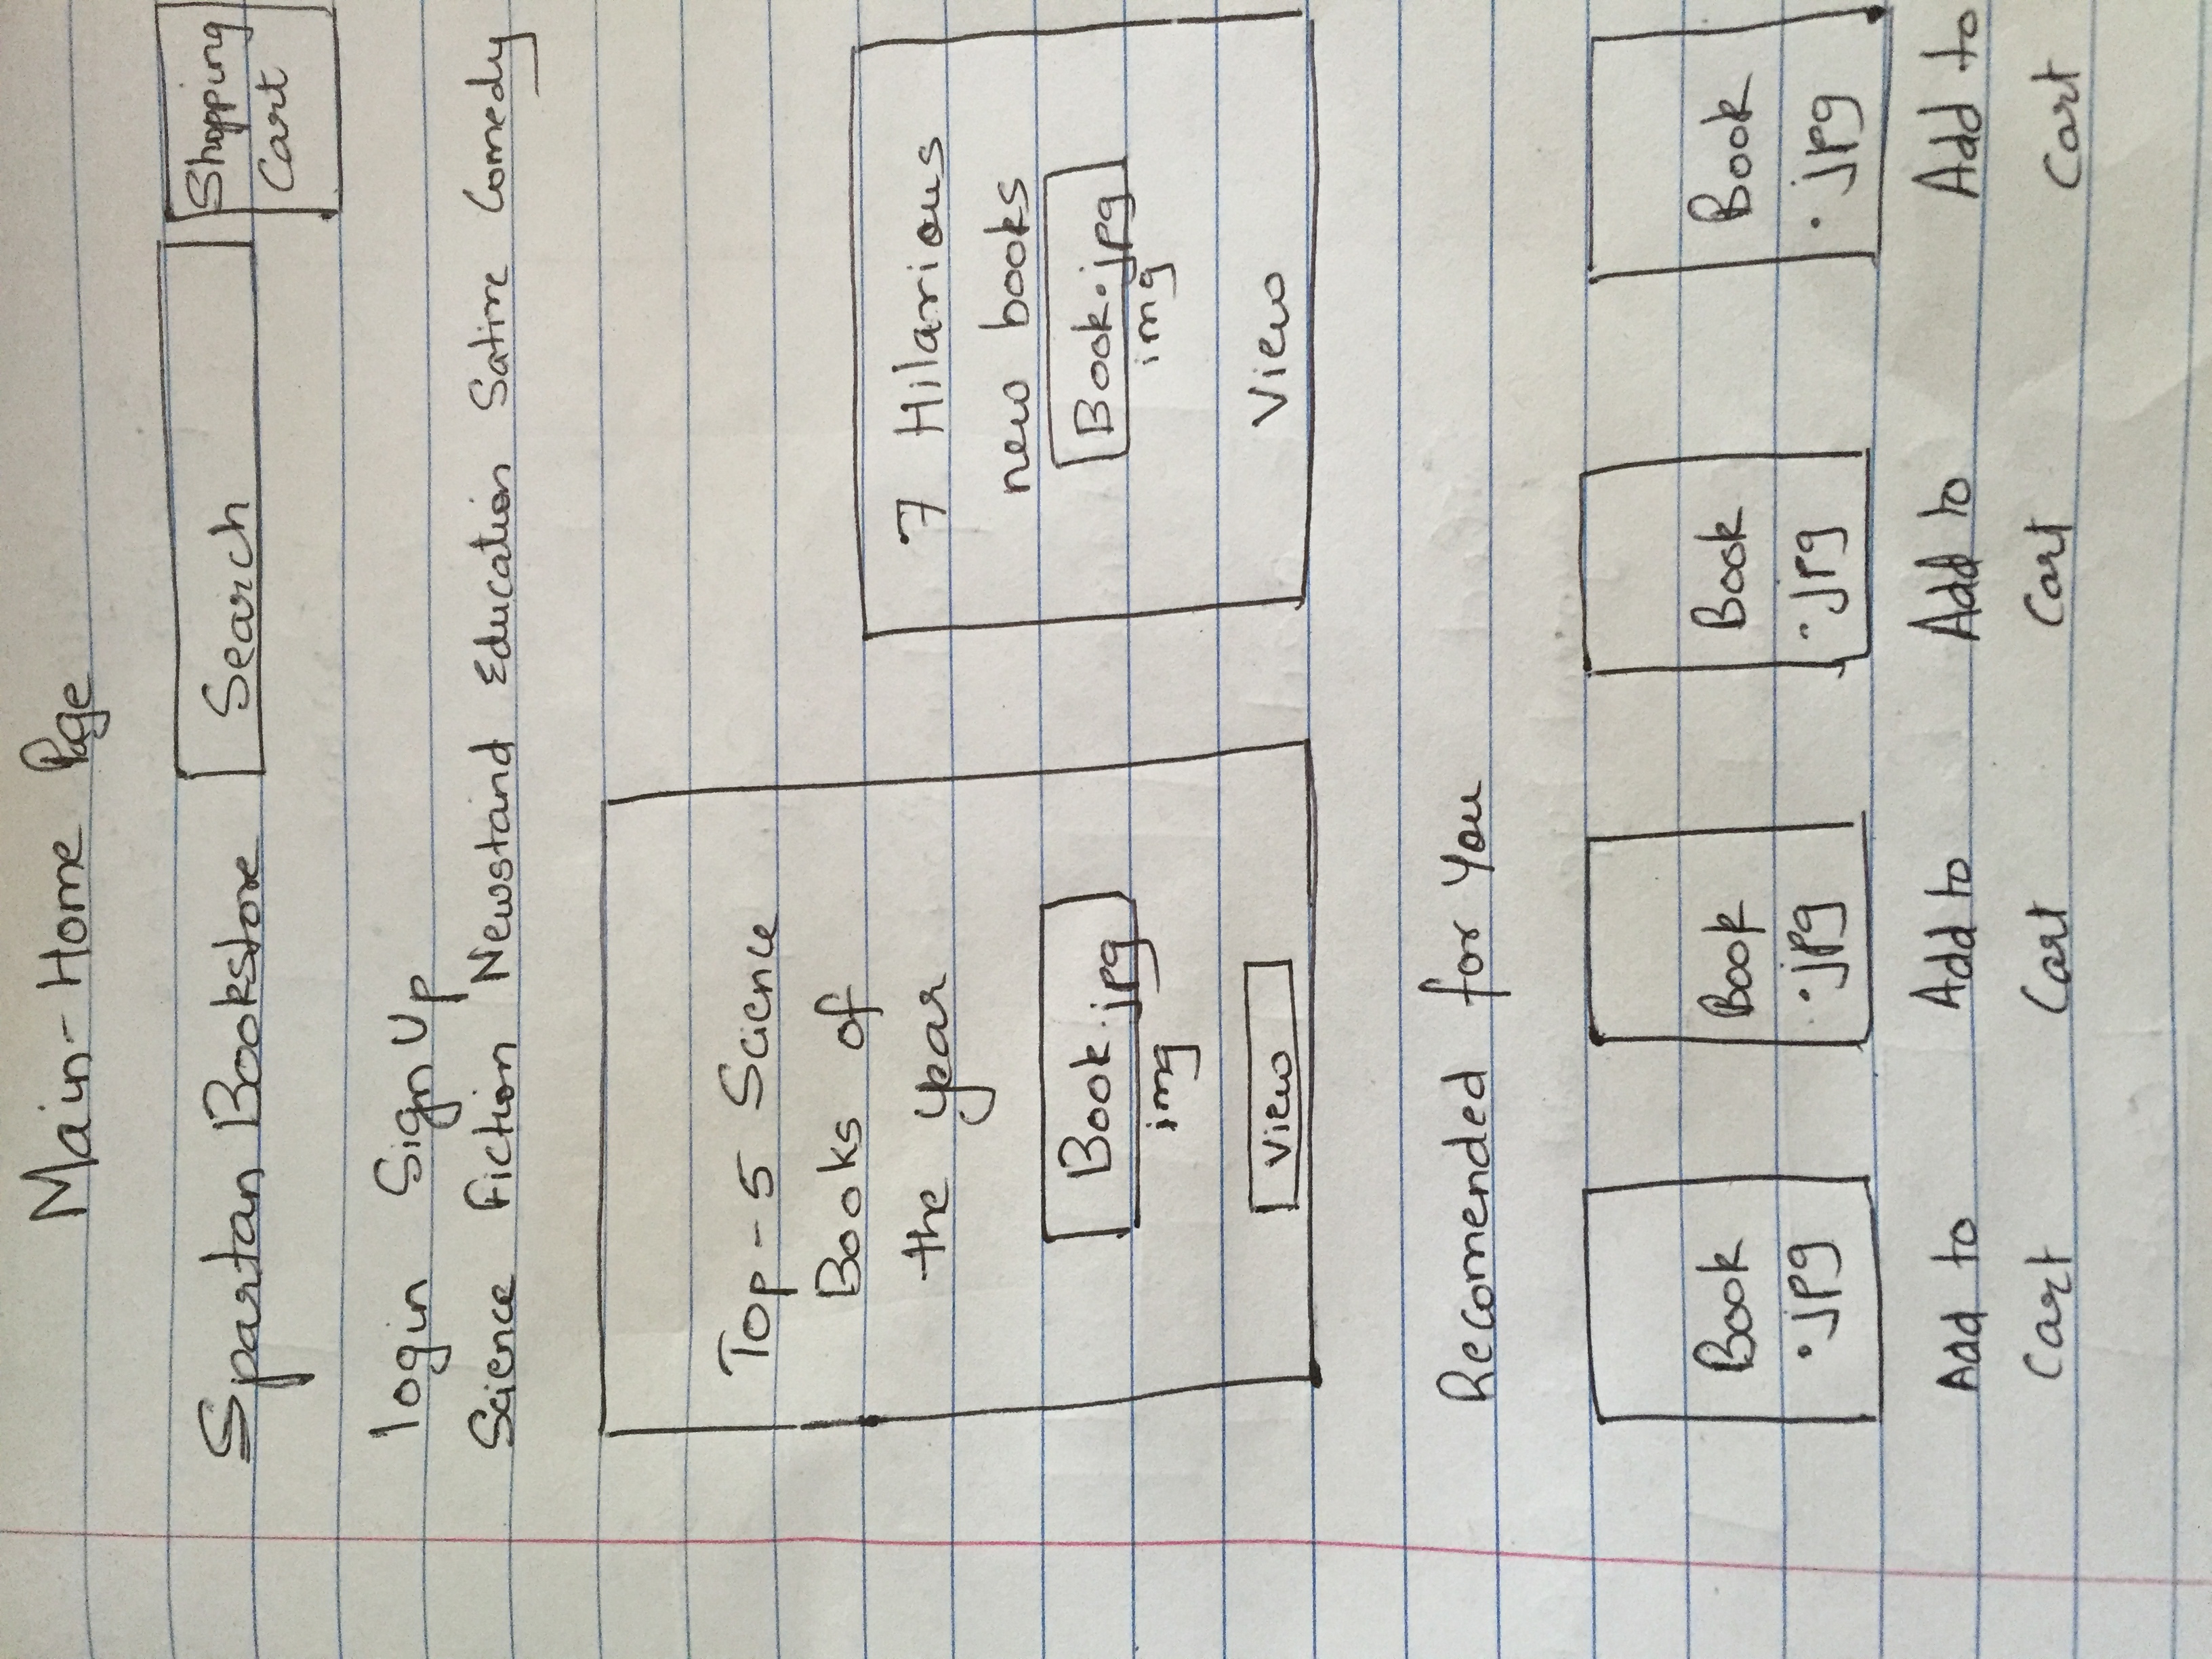 Main-Home Page
Spartan Bookstore Search Shopping
Cart
login Sign Up
Science Fiction Newstand Education Satire Comedy
Top-5 Science
Books of
the year
Book.jpg
img
View
7 Hilarious
new books
Book.jpg
img
View
Recomended for You
Book Book Book Book
.jpg .jpg .jpg .jpg
Add to Add to Add to Add to
Cart Cart Cart Cart